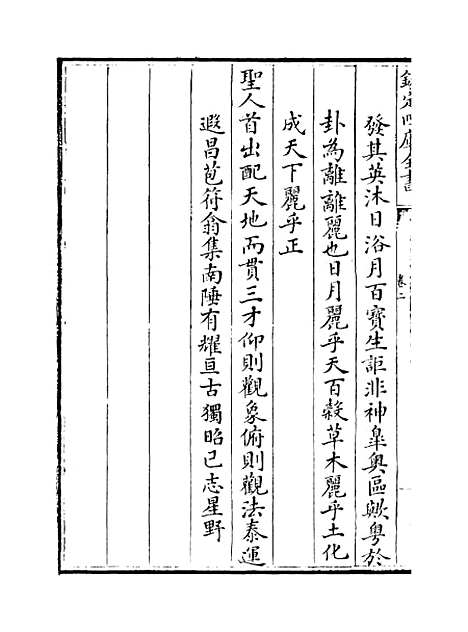 欽定四庫全書
卷二
發其英沐日浴月百寳生詎非神臯奥區歟粤於
卦為離離麗也日月麗乎天百糓草木麗乎土化
成天下麗乎正
聖人首出配天地而貫三才仰則觀象俯則觀法泰運
遐昌苞符翕集南陲有耀亘古獨昭已志星野